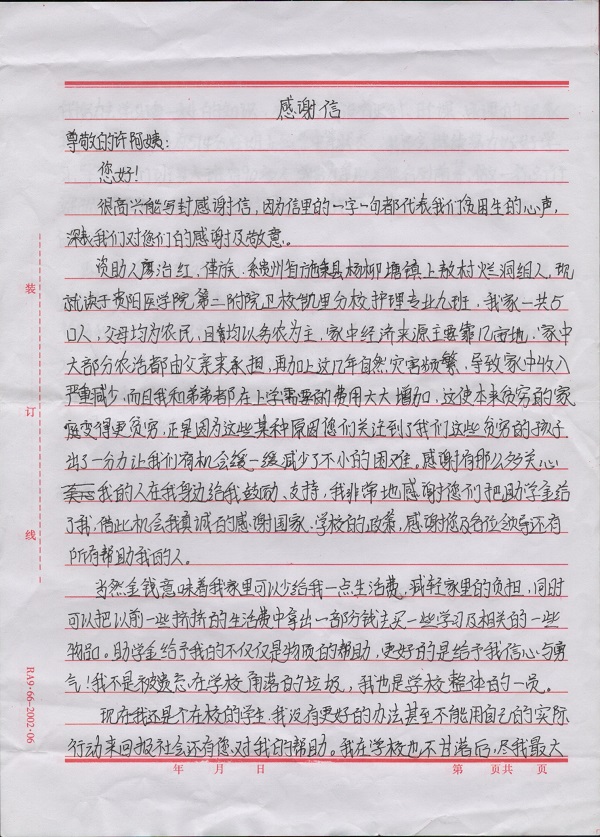 感谢信
尊敬的许阿姨：
您好！
很高兴能写封感谢信，因为信里的一字一句都代表我们贫困生的心声，
深表我们对您们的感谢及敬意。
资助人廖治红，侗族，系贵州省施秉县杨柳塘镇上敖村烂洞组人，现
就读于贵阳医学院第二附院卫校凯里分校护理专业九班，我家一共5
口人，父母均为农民，且皆均以务农为主，家中经济来源主要靠几亩地，家中
大部分农活都由父亲来承担，再加上这几年自然灾害频繁，导致家中收入
严重减少，而且我和弟弟都在上学需要的费用大大增加，这使本来贫穷的家
庭变得更贫穷，正是因为这些某种原因您们关注到了我们这些贫穷的孩子
出了一分力让我们有机会缓一缓减少了不小的困难。感谢有那么多关心
我的人在我身边给我鼓励、支持，我非常地感谢您们把助学金给
了我，借此机会我真诚的感谢国家、学校的政策，感谢您及各位领导还有
所有帮助我的人。
当然金钱意味着我家里可以少给我一点生活费，减轻家里的负担，同时
可以把以前一些挤挤的生活费中拿出一部分钱去买一些学习及相关的一些
物品。助学金给予我的不仅仅是物质的帮助，更好的是给予我信心与勇
气！我不是被遗忘在学校角落的垃圾，我也是学校整体的一员。
现在我还是个在校的学生，我没有更好的办法甚至不能用自己的实际
行动来回报社会还有您对我的帮助。我在学校也不甘落后，尽我最大
年 月 日 第 页共 页
装
订
线
RA9-66-2002-06